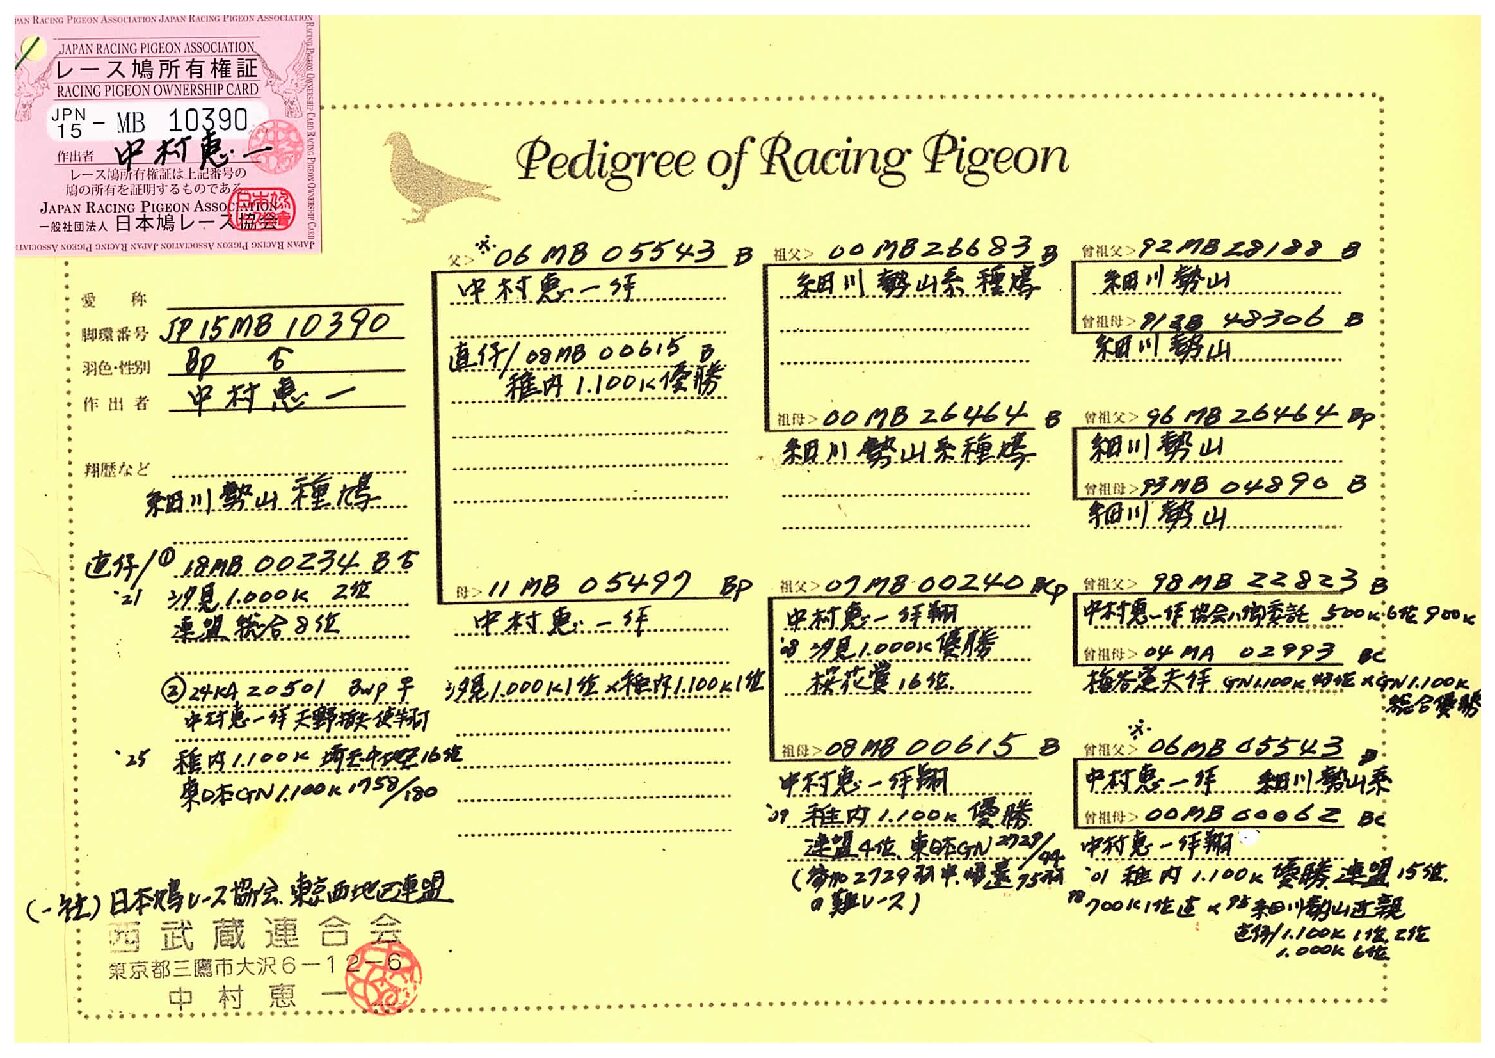 JAPAN RACING PIGEON ASSOCIATION
レース鳩所有権証
RACING PIGEON OWNERSHIP CARD
JPN
15 - MB 10390
作出者 中村惠一
レース鳩所有権証は上記番号の
鳩の所有を証明するものである
JAPAN RACING PIGEON ASSOCIATION
一般社団法人 日本鳩レース協会
Pedigree of Racing Pigeon
愛称
脚環番号 JP 15MB 10390
羽色・性別 BP 〇
作出者 中村惠一
翔歴など
細川勢山種鳩
直仔/① 18MB 00234 B
'21 汐見1.000K 2位
連盟総合8位
② 24KA 20501 BWP
中村惠一作
'25 稚内1.100K 16位
東日本GN1.100K 1758/180
父> ※ 06 MB 05543 B
中村惠一作
直仔/08MB 00615 B
稚内1.100K優勝
母> 11 MB 05497 BP
中村惠一作
汐見1.000K1位×稚内1.100K1位
祖父> 00 MB 26683 B
細川勢山系種鳩
祖母> 00 MB 26464 B
細川勢山系種鳩
祖父> 07 MB 00240 BCP
中村惠一作翔
'08 汐見1.000K優勝
桜花賞16位
祖母> 08 MB 00615 B
中村惠一作翔
'09 稚内1.100K優勝
連盟4位 東日本GN 2729/44
(参加2729羽中、帰還75羽
の難レース)
曾祖父> 92 MB 28188 B
細川勢山
曾祖母> 91 48306 B
細川勢山
曾祖父> 96 MB 26464 BP
細川勢山
曾祖母> 93 MB 04890 B
細川勢山
曾祖父> 98 MB 22823 B
中村惠一作 協会 委託 500K6位 900K
曾祖母> 04 MA 02993 BC
作 GN1.100K ×GN1.100K
総合優勝
※
曾祖父> 06 MB 05543 B
中村惠一作 細川勢山系
曾祖母> 00 MB 60062 BC
中村惠一作翔
'01 稚内1.100K優勝 連盟15位
98 700K1位 × 細川勢山近親
直仔/1.100K 1位、2位
1.000K 6位
(一社)日本鳩レース協会、東京西地区連盟
西武蔵連合会
東京都三鷹市大沢6-12-6
中村惠一